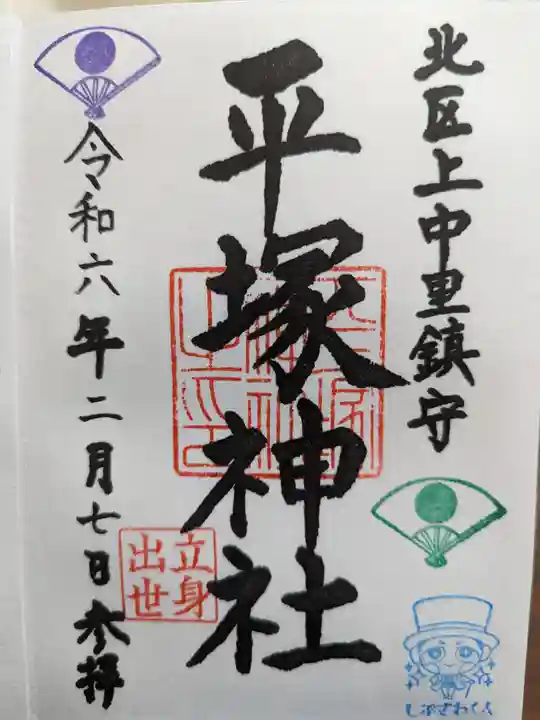 北区上中里鎮守
平塚神社
立身
出世
令和六年二月七日参拝
しぶさわくん